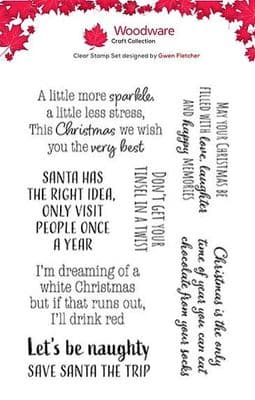 Woodware
Craft Collection
Clear Stamp Set designed by Gwen Fletcher
A little more sparkle,
a little less stress,
This Christmas we wish
you the very best
MAY YOUR CHRISTMAS BE
FILLED WITH love, laughter
AND happy MEMORIES
SANTA HAS
THE RIGHT IDEA,
ONLY VISIT
PEOPLE ONCE
A YEAR
DON'T GET YOUR
TINSEL IN A TWIST
Christmas is the only
time of year you can eat
chocolate from your socks
I'm dreaming of a
white Christmas
but if that runs out,
I'll drink red
Let's be naughty
SAVE SANTA THE TRIP